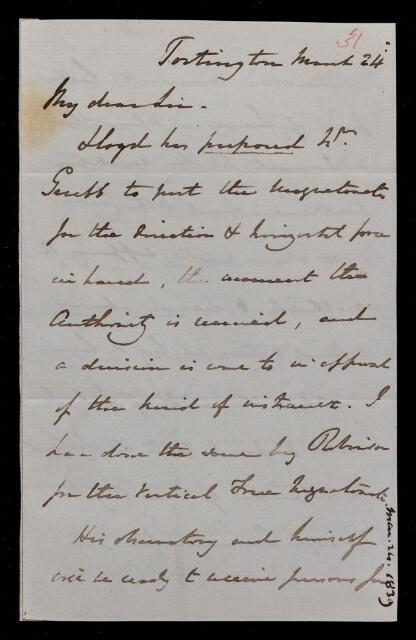 31
Tortington March 24
My dear Sir.
Lloyd has prepared Lt.
Grubb to put the Magnetometer
for the Direction & horizontal force
in hand, the moment the
Authority is received, and
a decision is come to in approval
of the kind of instrument. I
have done the same by Robinson
for the Vertical Force Magnetometer
His observatory and himself
will be ready to receive persons for
Mar. 24. 1839